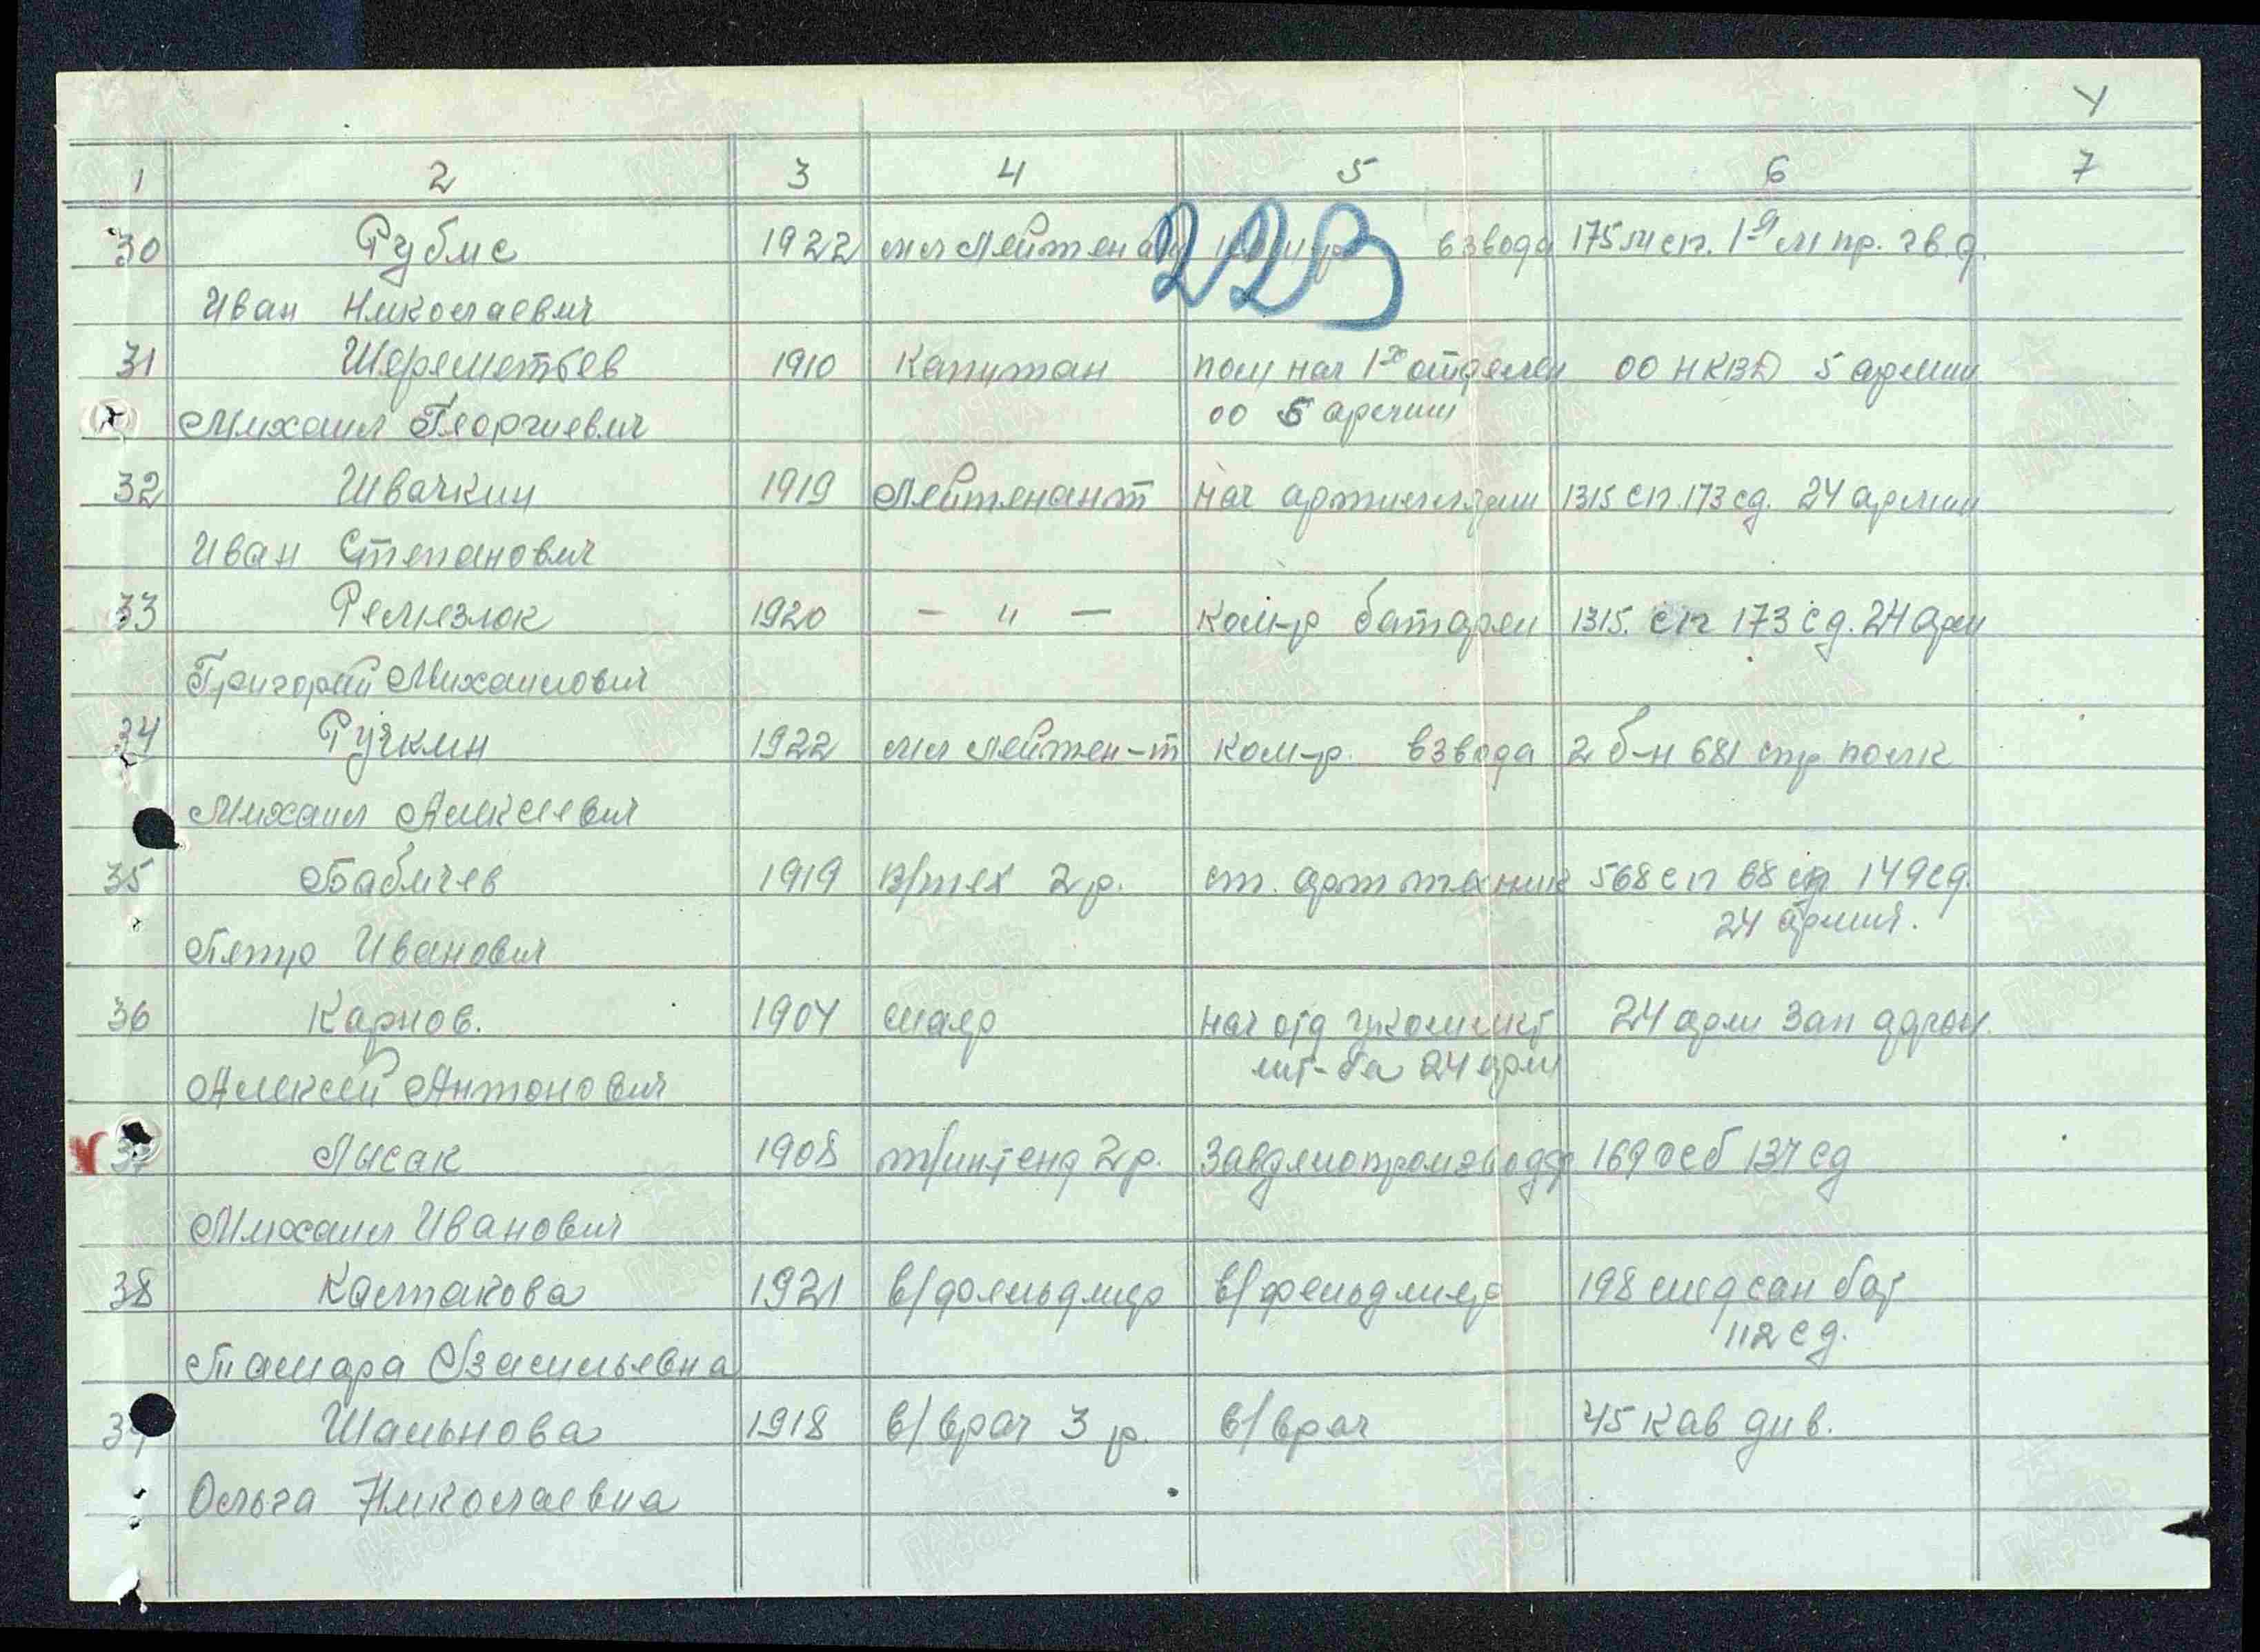 4
1 2 3 4 5 6 7
223
30 Рубис 1922 мл лейтенант ком-р взвода 175 м сп. 1й м пр. гв. д.
Иван Николаевич
31 Шереметьев 1910 Капитан пом нач 1го отделен ОО НКВД 5 армии
Михаил Георгиевич ОО 5 армии
32 Швачкин 1919 Лейтенант нач артиллерии 1315 сп. 173 сд. 24 армии
Иван Степанович
33 Ремезюк 1920 — " — ком-р батареи 1315. сп 173 сд. 24 арм
Григорий Михайлович
34 Ручкин 1922 мл лейтен-т ком-р. взвода 2 б-н 681 стр полк
Михаил Алексеевич
35 Бабичев 1919 в/тех 2 р. ст. арт техник 568 сп 68 сд 149 сд.
24 армия.
Петр Иванович
36 Карпов. 1904 маер нач отд укомплект 24 арм Зап
шт-ба 24 арм
Алексей Антонович
37 Лысак 1908 т/интенд 2 р. Завделопроизвод 169 осб 134 сд
Михаил Иванович
38 Кастакова 1921 в/фельдшер в/фельдшер 198 мед сан бат
112 сд.
Тамара Васильевна
39 Шальнова 1918 в/врач 3 р. в/врач 45 кав див.
Ольга Николаевна